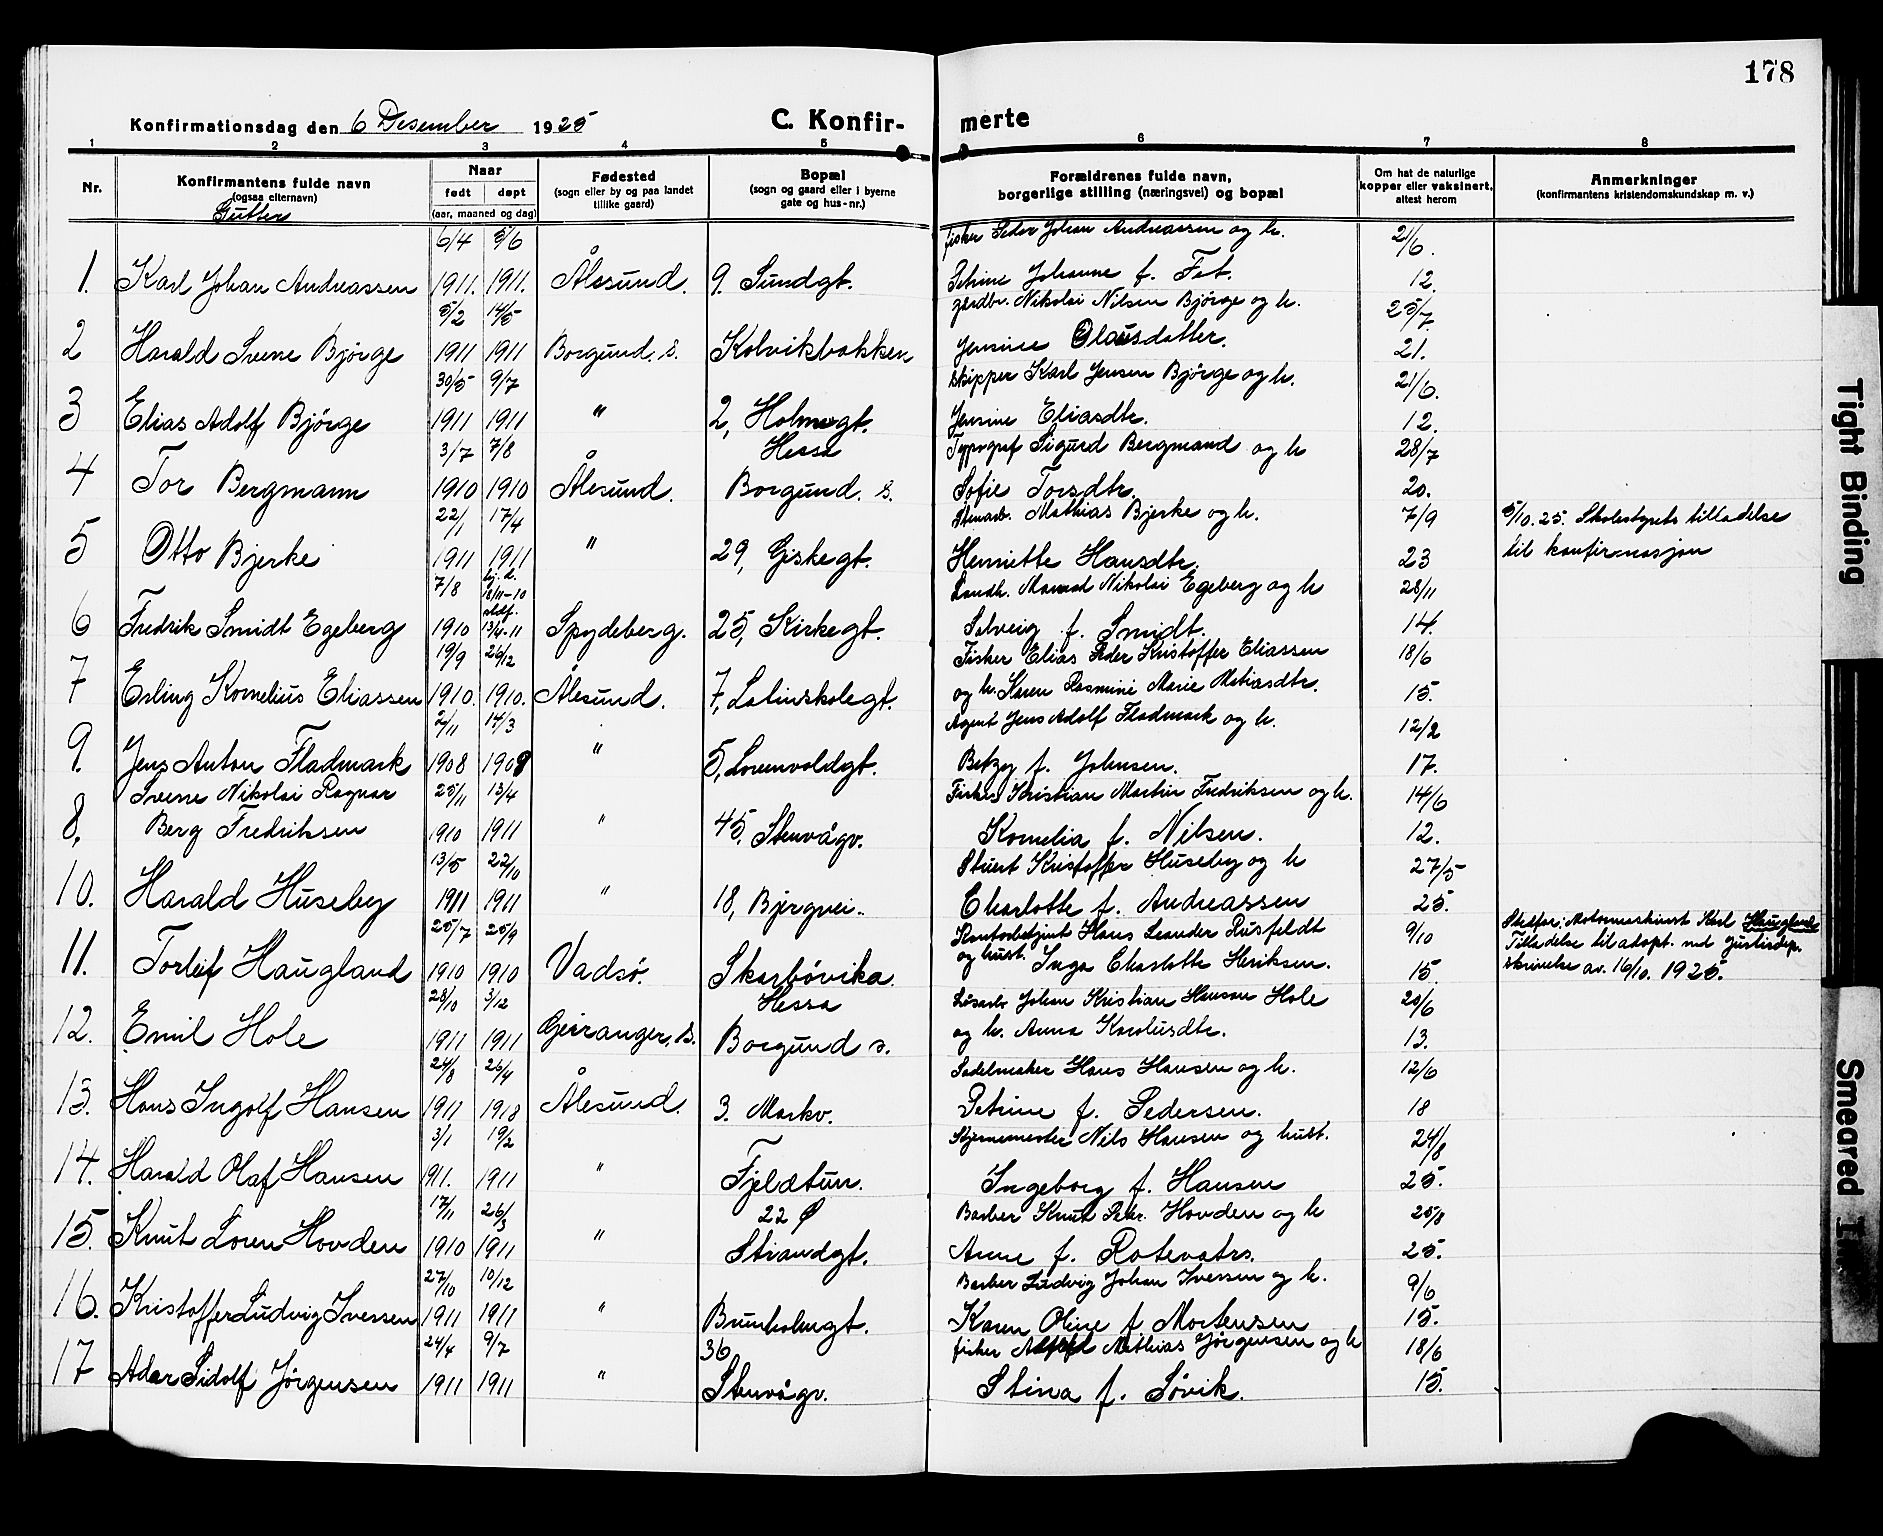 178
Konfirmationsdag den 6 Desember 1925 C. Konfirmerte
1 2 3 4 5 6 7 8
Nr. Konfirmantens fulde navn (ogsaa efternavn) Naar født døpt (aar, maaned og dag) Fødested (sogn eller by og paa landet tillike gaard) Bopæl (sogn og gaard eller i byerne gate og hus-nr.) Forældrenes fulde navn, borgerlige stilling (næringsvei) og bopæl Om hat de naturlige kopper eller vaksinert, altest herom Anmerkninger (konfirmantens kristendomskundskap m. v.)
Gutter
6/4 5/6 fisker Peder Johan Andreassen og h. 21/6.
1. Karl Johan Andreassen 1911. 1911. Ålesund. 9. Sundgt. Petrine Johanne f. Fet. 12.
5/2 14/5 gardbr. Nikolai Nilsen Bjørge og h. 25/7.
2 Harald Svene Bjørge 1911 1911 Borgund. s. Kolvikbakken Jensine Olausdatter. 21.
30/5 9/7 skipper Karl Jensen Bjørge og h. 21/6.
3 Elias Adolf Bjørge 1911 1911 " 2, Holmegt. Jensine Eliasdtr. 12.
3/7 7/8 Hessa Typograf Sigurd Bergmand og h 28/7
4 Tor Bergmann 1910 1910 Ålesund. Borgund. s. Sofie Torsdtr. 20.
22/1 17/4 Mathias Bjerke og h. 7/9 5/10.25. Skolestyrets tilladelse
5 Otto Bjerke 1911 1911 " 29, Giskegt. Henriette Hansdtr. 23 til konfirmasjon
7/8 hj. d. 18/11-10 Nikolai Egeberg og h 28/11
6 Fredrik Smidt Egeberg 1910 stdf. 13/4-11 Spydeberg. 25, Kirkegt. Solveig f. Smidt. 14.
19/9 26/12 Fisker Elias Peder Kristoffer Eliassen 18/6
7 Erling Kornelius Eliassen 1910. 1910. Ålesund. 7, Latinskolegt. og h. Karen Rasmine Marie Matiasdtr. 15.
2/11 14/3 Agent Jens Adolf Fladmark og h. 12/2
9. Jens Anton Fladmark 1908 1909 " 5, Lorenvoldgt. Betzy f. Johnsen. 17.
Svene Nikolai Ragnar 25/11 13/4 Fisker Kristian Martin Fredriksen og h. 14/6
8, Berg Fredriksen 1910 1911 " 45. Stenvågv. Kornelia f. Nilsen. 12.
13/5 22/10 Stuert Kristoffer Huseby og h 27/5
10. Harald Huseby 1911 1911 " 18, Bjergvei.. Charlotte f. Andreassen 25.
25/7 25/9 Kontorbetjent Hans Leander Rusfeldt 9/10 Stedfar: Motormaskinist Karl Haugland
11. Torleif Haugland 1910 1910 Vadsø. Skarbøvika. og hust. Inga Charlotte Heriksen. 15. Tilladelse til adopt. ved Justisdep. skrivelse av. 16/10. 1925.
28/10 3/12 Hessa Johan Kristian Hansen Hole 20/6
12. Emil Hole 1911 1911 Geiranger, s. Borgund s. og h. Anna Karolusdtr. 13.
24/8 26/4 Sadelmaker Hans Hansen og h. 12/6
13. Hans Ingolf Hansen 1911 1918 Ålesund. 3. Markv. Petrine f. Pedersen. 18
3/1 19/2 Nils Hansen og hust. 24/8
14. Harald Olaf Hansen 1911. 1911 " Fjeldtun. Ingeborg f. Hansen 25.
17/11 26/3 22 Ø Barber Knut Petr. Hovden og h 25/8
15. Knut Loren Hovden 1910 1911 " Strandgt. Anne f. Rotevatrs. 25.
27/10 10/12 Barber Ludvig Johan Iversen og h. 9/6
16. Kristoffer Ludvig Iversen 1911 1911 " Bunholmgt. Karen Oline f. Mortensen 15.
24/4 9/7 36 fisker Mathias Jørgensen og h 18/6
17 Adar Sidolf Jørgensen 1911 1911 " Stenvågv. Stina f. Søvik. 15.
Tight Binding
Smeared